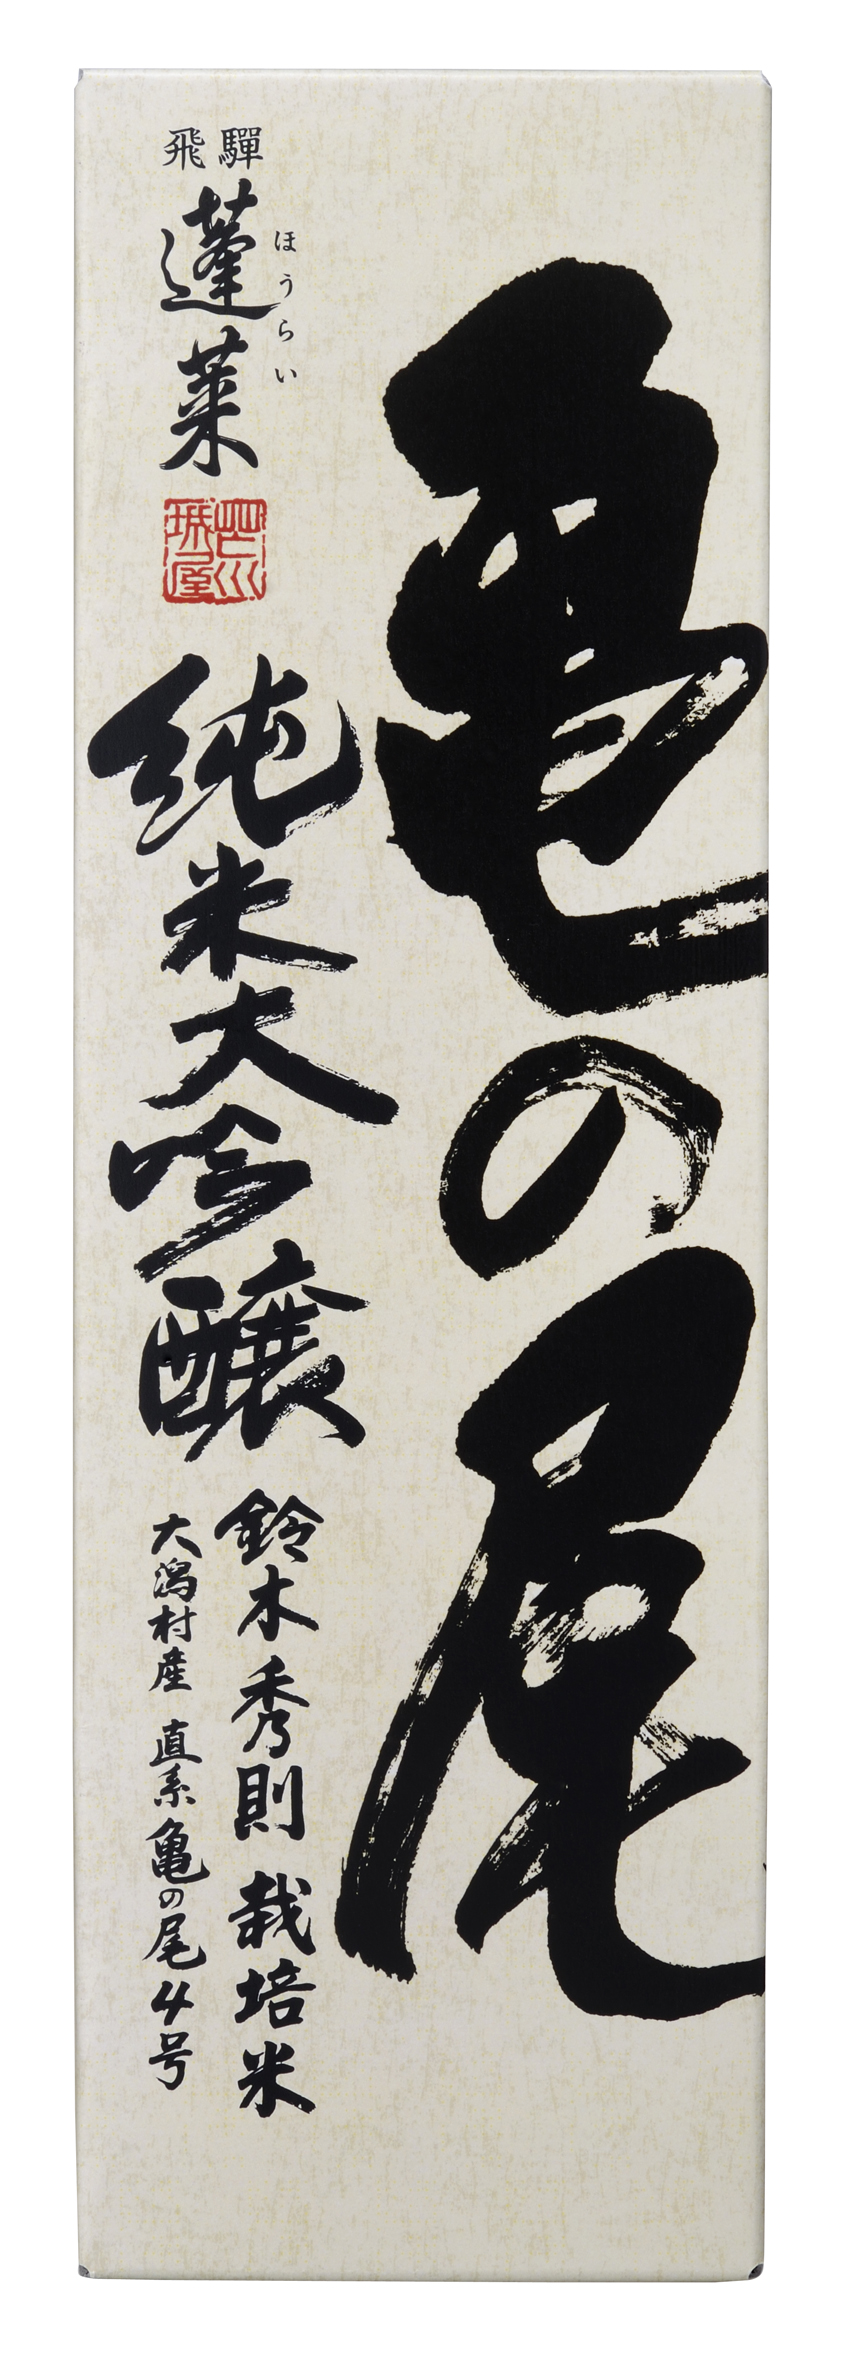 亀の尾
飛騨
蓬莱
ほうらい
純米大吟醸
鈴木秀則 栽培米
大潟村産 直系亀の尾4号